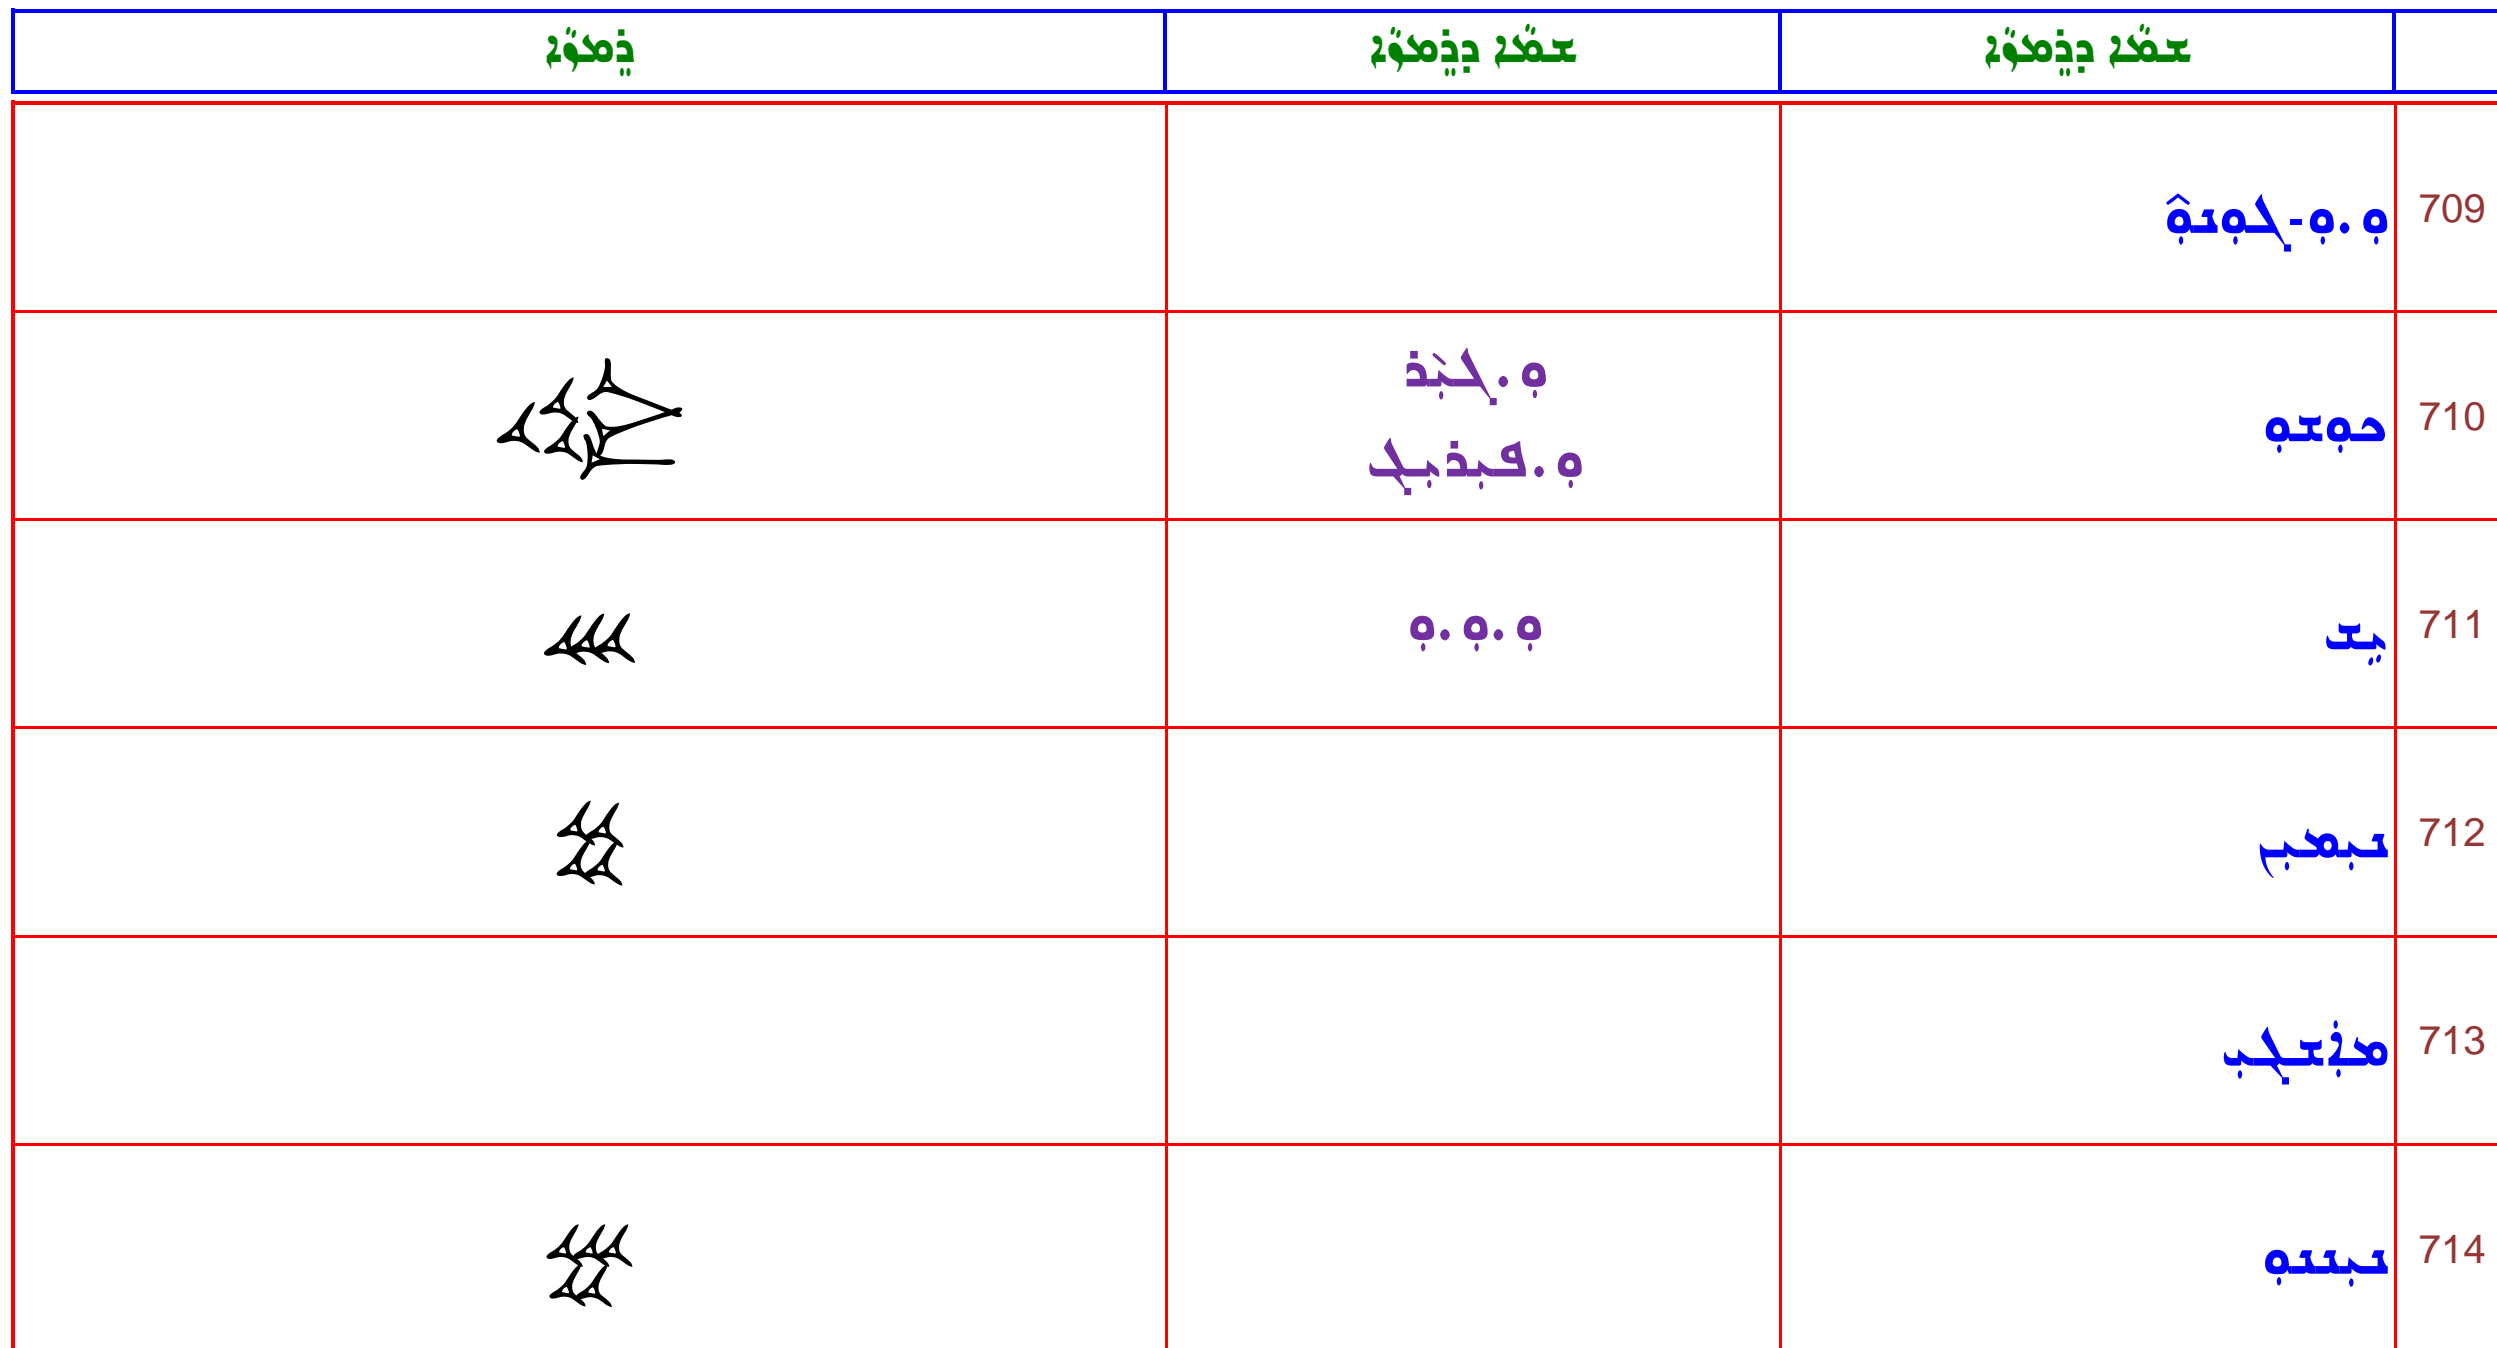 ܫܸܡܵܐ ܕܪܸܡܙܵܐ
ܫܸܡܵܐ ܕܪܸܡܙܵܐ
ܪܸܡܙܵܐ
709
ܘܼ.ܘܼ-ܓܘܼܢܘܼ̂
710
ܟܘܼܫܘܼ
ܘܼ.ܓܝܼ̀ܪ
ܘܼ.ܦܝܼܪܝܼܓ
711
ܝܹܫ
ܘܼ.ܘܼ.ܘܼ
712
ܢܝܼܡܝܼܢ
713
ܡܐܲܫܓܝܼ
714
ܢܝܼܢܢܘܼ